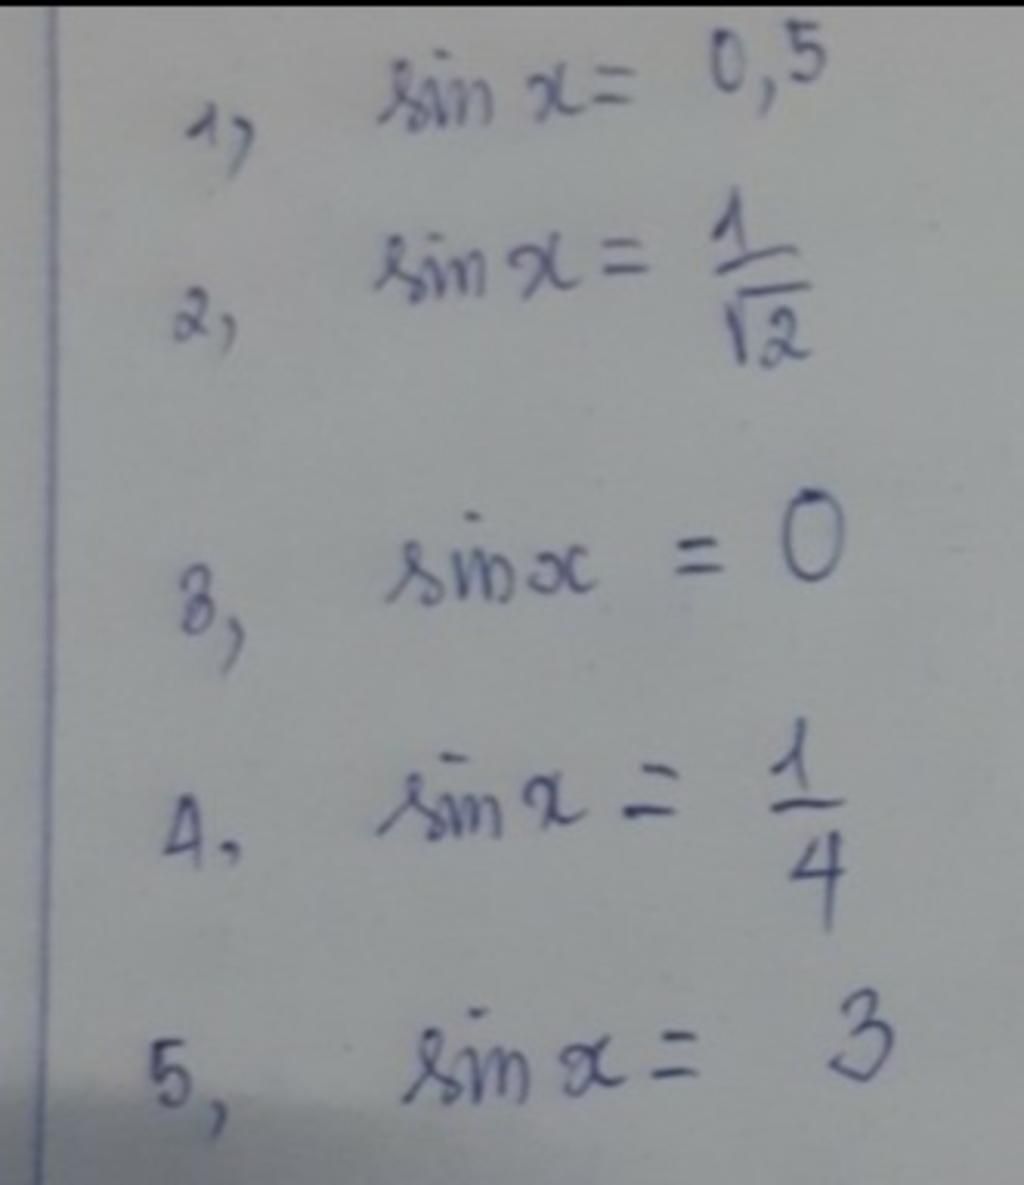 1, sin x = 0,5
2, sin x = 1/√2
3, sin x = 0
4. sin x = 1/4
5, sin x = 3